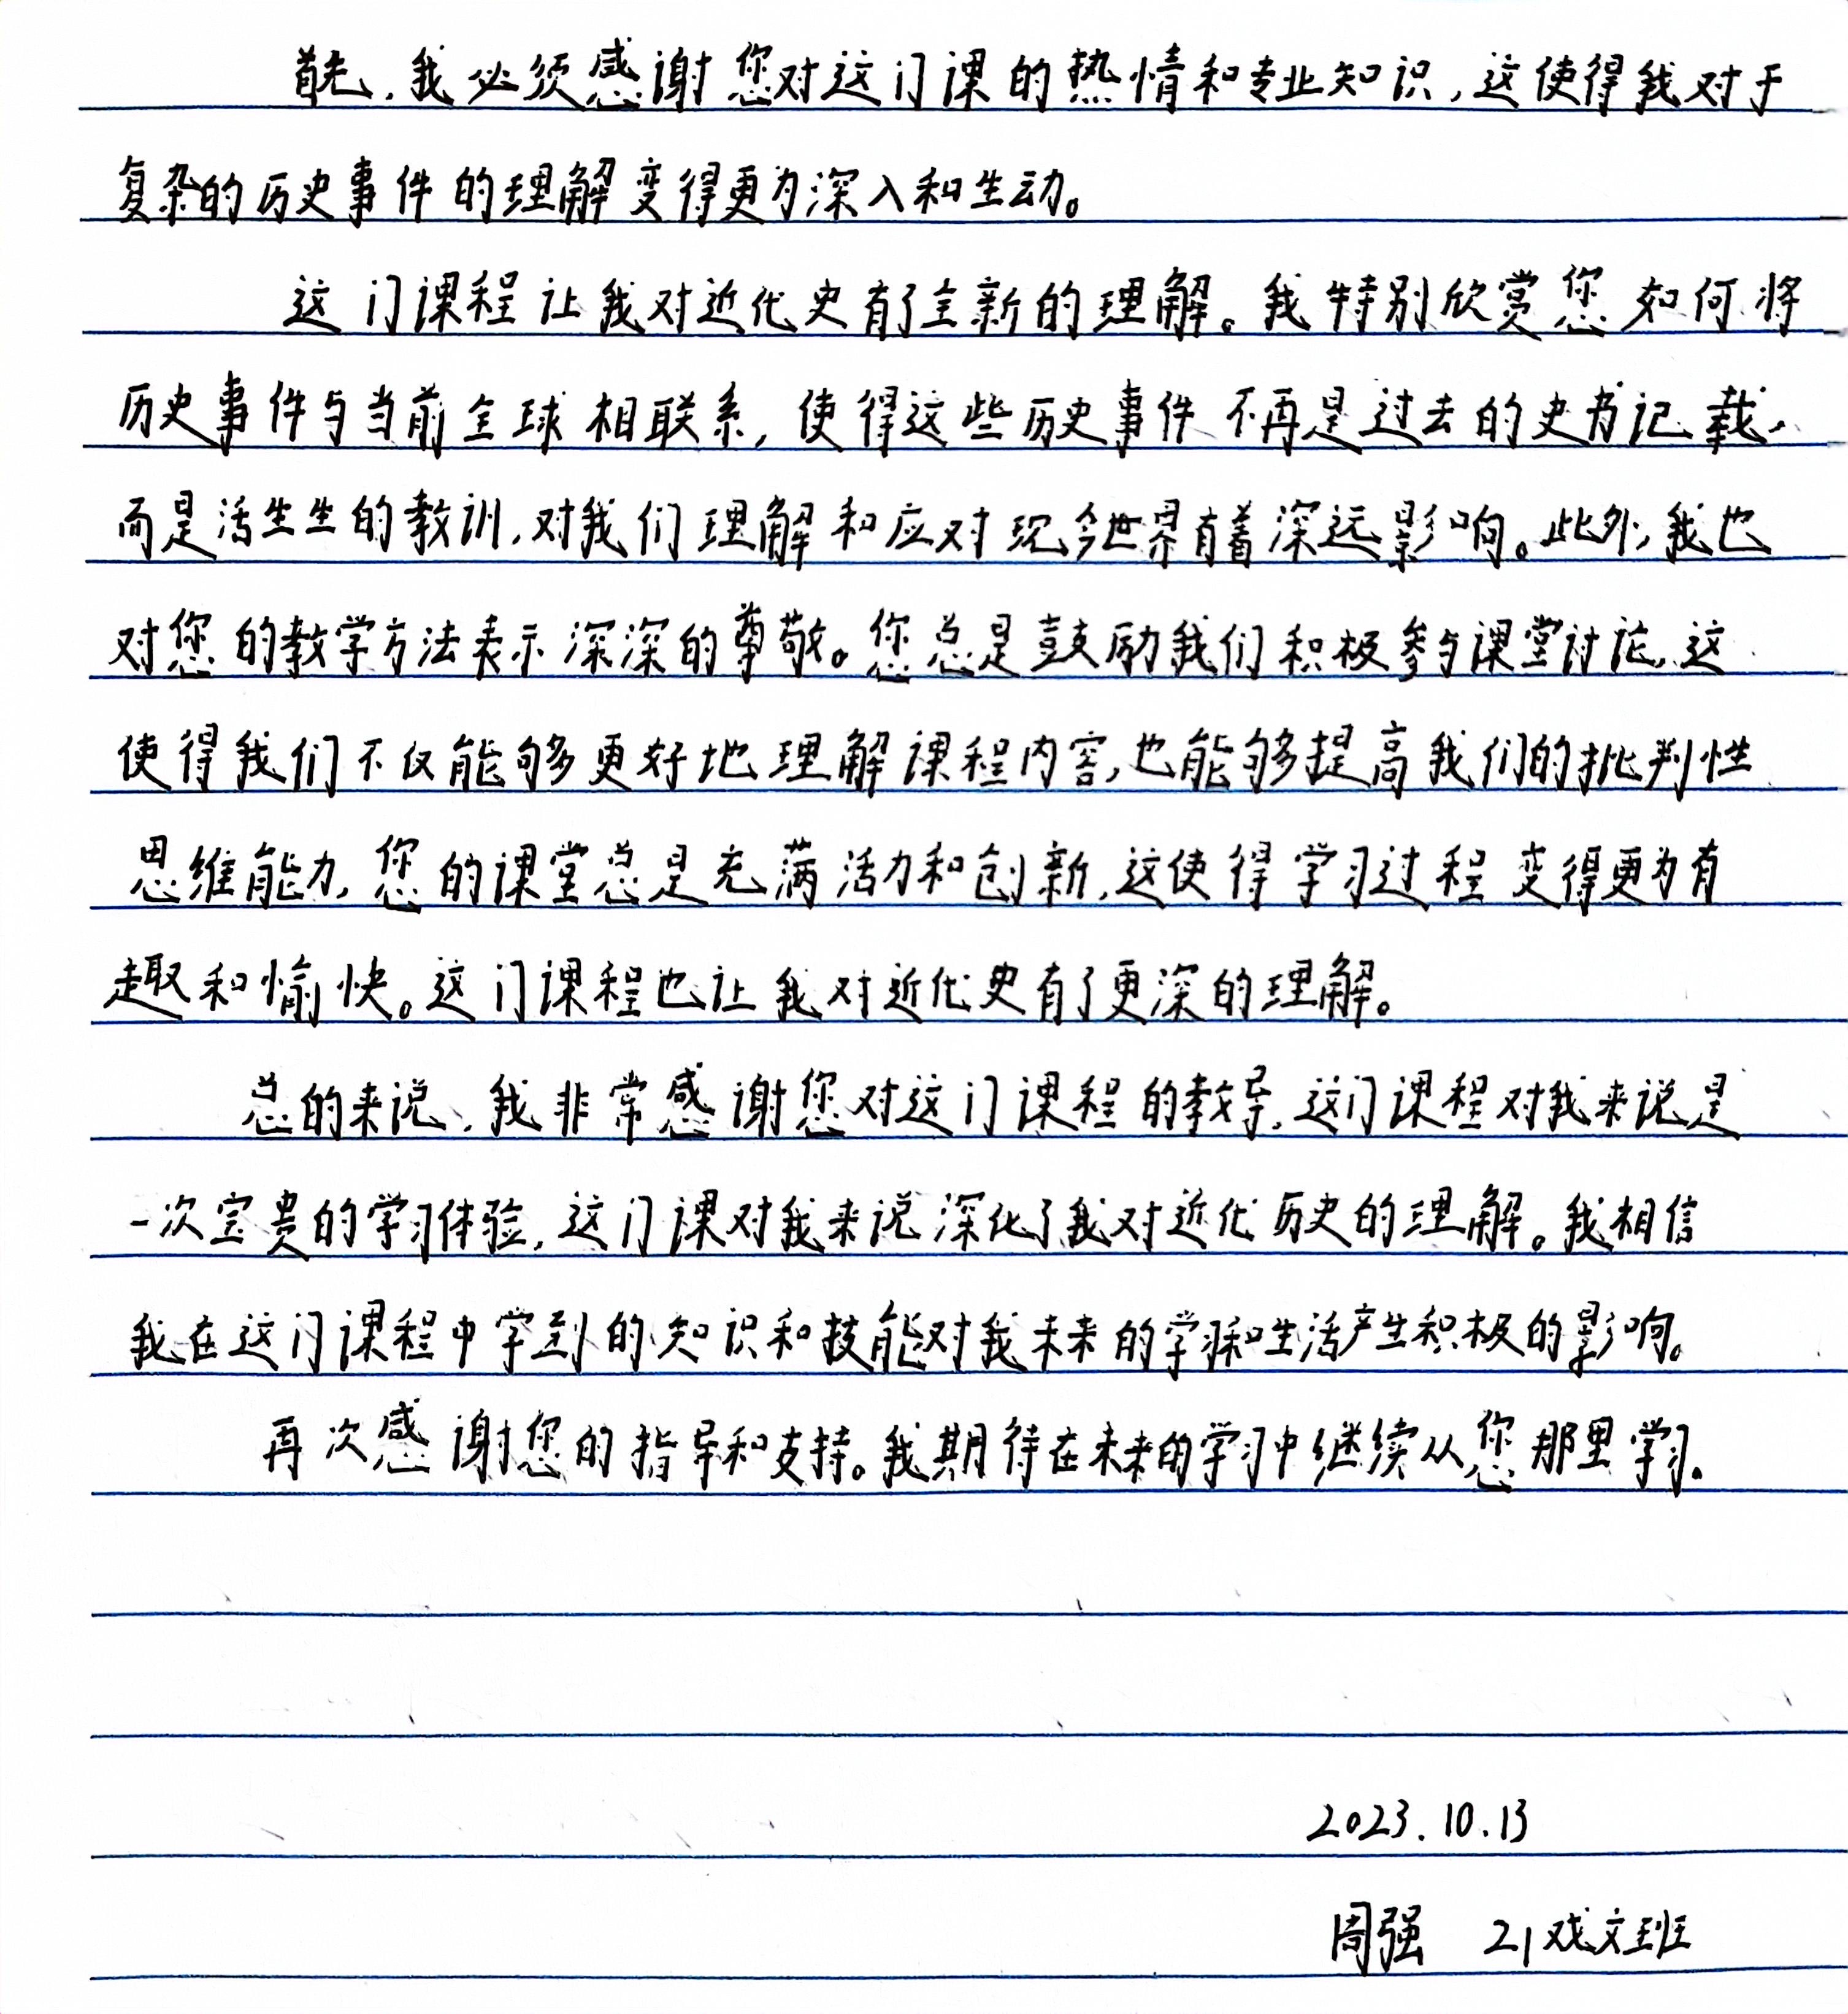 首先,我必须感谢您对这门课的热情和专业知识,这使得我对于
复杂的历史事件的理解变得更为深入和生动。
这门课程让我对近代史有了全新的理解。我特别欣赏您如何将
历史事件与当前全球相联系,使得这些历史事件不再是过去的史书记载,
而是活生生的教训,对我们理解和应对现今世界有着深远影响。此外,我也
对您的教学方法表示深深的尊敬。您总是鼓励我们积极参与课堂讨论,这
使得我们不仅能够更好地理解课程内容,也能够提高我们的批判性
思维能力,您的课堂总是充满活力和创新,这使得学习过程变得更为有
趣和愉快。这门课程也让我对近代史有了更深的理解。
总的来说,我非常感谢您对这门课程的教导,这门课程对我来说是
一次宝贵的学习体验,这门课对我来说深化了我对近代历史的理解。我相信
我在这门课程中学到的知识和技能对我未来的学习和生活产生积极的影响。
再次感谢您的指导和支持。我期待在未来的学习中继续从您那里学习。
2023.10.13
周强 21戏文班